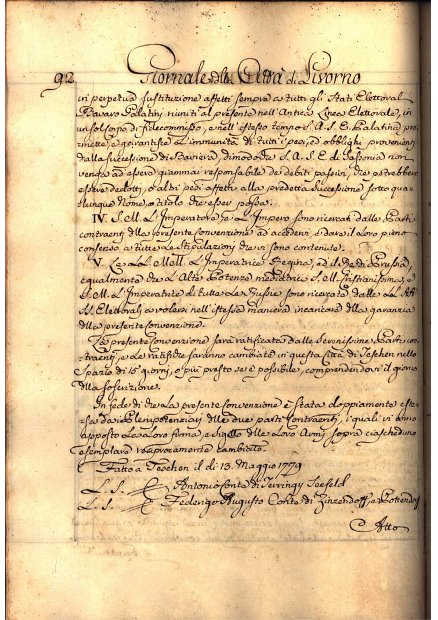 92 Giornale della Città di Livorno
in perpetua sustituzione affetti sempre a tutti gli Stati Elettorali
Bavaro Palatini riuniti al presente nell'Antica Linea Elettorale, in
un sol corpo di Fidecommisso, e nell'istesso tempo S. A. S. E. Palatina, pro
mette, e garantisce l'immunità di tutti i pesi, ed obblighi provenienti
dalla successione di Baviera, dimodoche S. A. S. E. di Sassonia non
venga ad essere giammai responsabile de debiti passivi, che potrebbero
essere dedotti, o altri pesi affetti alla predetta successione sotto qua-
lunque Nome, o titolo che esser possa.
IV. S. M. L'Imperatore, e L'Impero sono ricercati dalle Parti
contraenti della presente convenzione ad accedervi, e dare il loro pieno
consenso a tutte le stipulazioni che vi sono contenute.
V. Le LL. MM. L'Imperatrice Regina, ed il Re di Prussia,
egualmente che l'Alte Potenze mediatrici S. M. Cristianissima, e
S. M. L'Imperatrice di tutte le Russie sono ricercate dalle LL. AA.
SS. Elettorali a volersi nell'istessa maniera incaricare della garanzia
della presente convenzione.
La presente convenzione sarà ratificata dalle Serenissime Parti con-
traenti, e le ratifiche saranno cambiate in questa Città di Teschen nello
spazio di 15 giorni, o più presto se è possibile, comprendendovi il giorno
della soscrizione.
In fede di che la presente convenzione è stata doppiamente este-
sa da i Plenipotenziarj delle due parti contraenti, i quali vi anno
apposto la loro firma, e sigillo delle loro Armi sopra ciascheduno
esemplare reciprocamente cambiato.
Fatto a Teschen il di 13. Maggio 1779
L. S. Antonio Conte di Seefeld
L. S. Federigo Augusto Conte di Zinzendorff, e Pottendorf
Atto